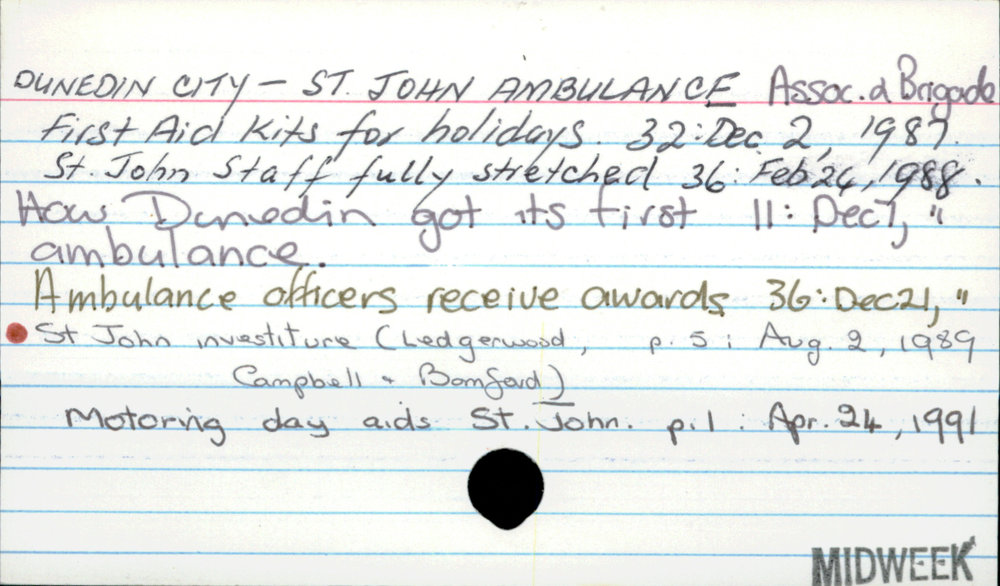 DUNEDIN CITY - ST. JOHN AMBULANCE Assoc. & Brigade
First Aid Kits for holidays. 32: Dec. 2, 1987.
St. John Staff fully stretched 36: Feb 24, 1988.
How Dunedin got its first 11: Dec 7, "
ambulance.
Ambulance officers receive awards 36: Dec 21, "
St John investiture (Ledgerwood, p. 5: Aug. 2, 1989
Campbell + Bamford)
Motoring day aids St. John. p.1: Apr. 24, 1991
MIDWEEK